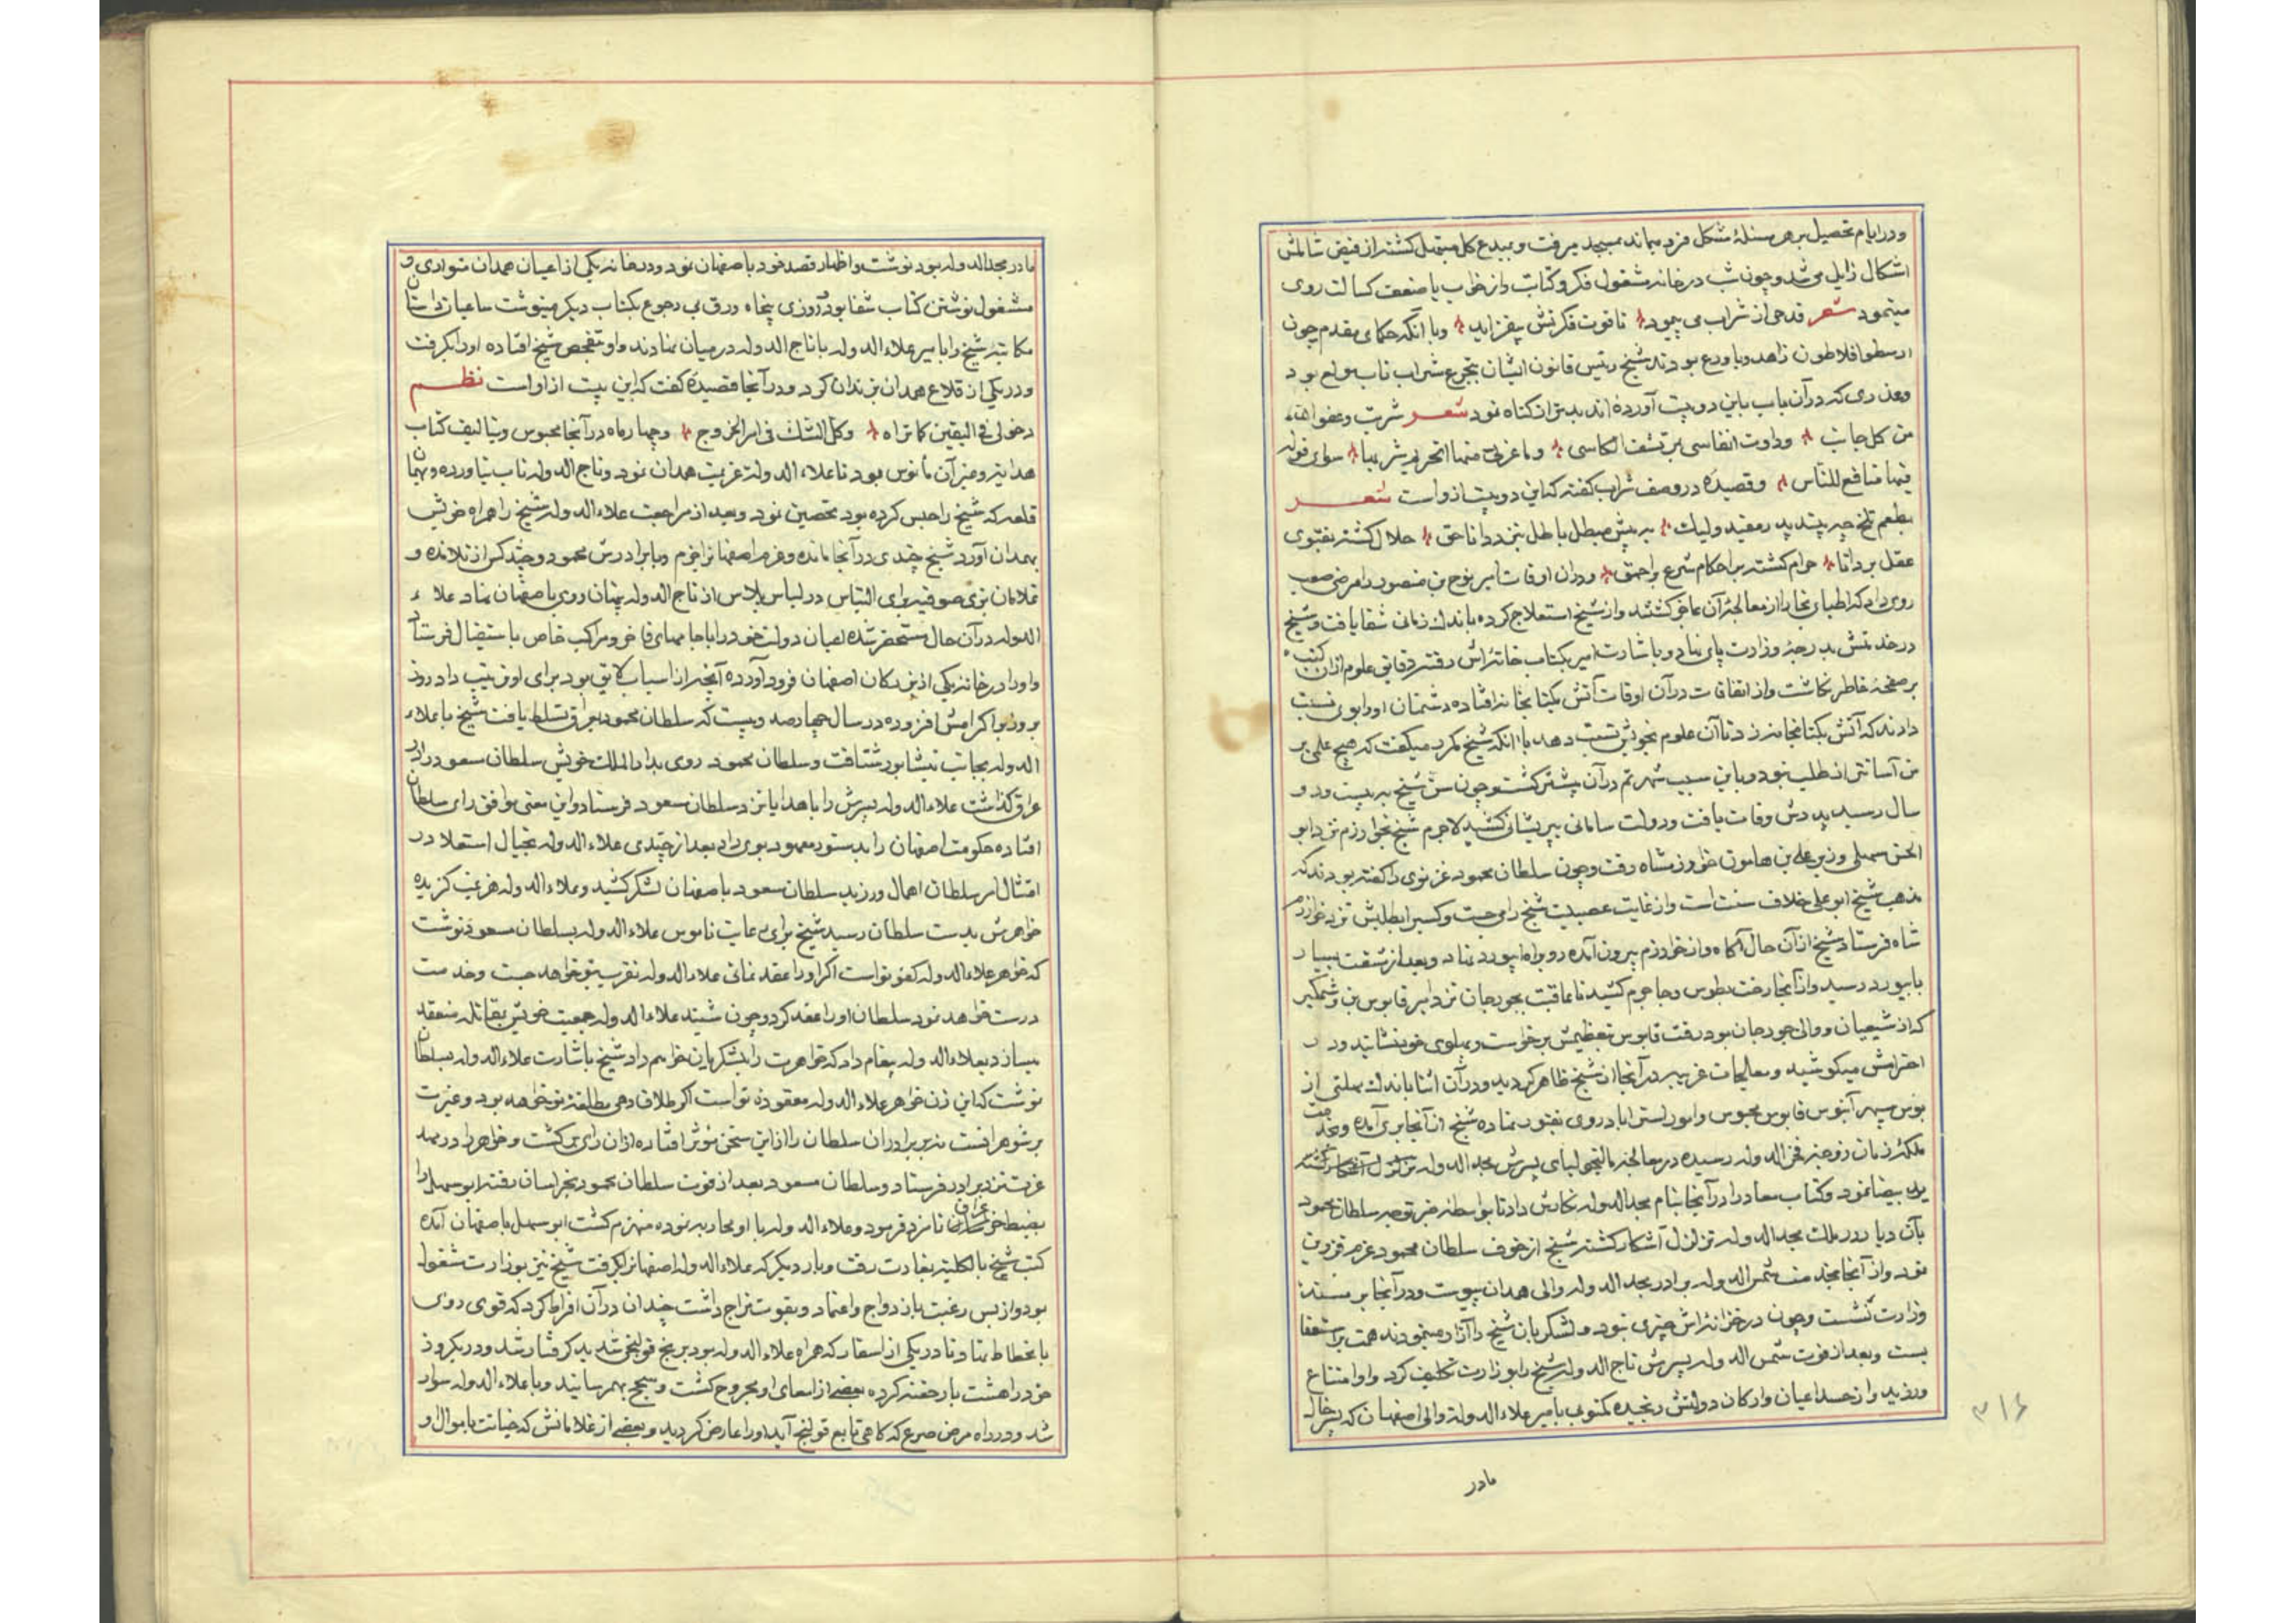 ودر ایام تحصیل بر هر مسئلهٔ مشکل فرو میماند بمسجد میرفت و بمبدع کل مبتهل کشته از فیض شاملش
اشکال زایل می شد و چون شب در خانه مشغول فکر و کتابت و از خواب یا ضعف کسالت روی
مینمود شعر قدحی از شراب می پیمود تا قوت فکرتش بیفزاید وبا آنکه حکمای مقدم چون
ارسطو افلاطون زاهد و با ورع بودند شیخ رئیس قانون ایشان بتجرع شراب ناب مولع بود
وعذری که در آن باب باین دو بیت آورده اند بدتر از کناه نمود شعر شربت وعفو الله
من کل جانب وداوت انفاسی برشف الکاسی وما غرنی منها التحریم شربها سوای قوله
فیها منافع للناس وقصیدهٔ در وصف شراب کفته که این دو بیت از واست شعر
بطعم تلخ چو پند پدر مفید ولیک به پیش مبطل باطل بنزد دانا حق حلال کشته بفتوی
عقل بر دانا حرام کشته بر احکام شرع بر احمق ودران اوقات امیر نوح بن منصور را مرضی صعب
روی داد که اطبای بخارا از معالجهٔ آن عاجز کشتند واز شیخ استعلاج کرده باندک زمانی شفا یافت و شیخ
در خدمتش بدرجهٔ وزارت پای نهاد و باشارت امیر بکتاب خانه اش رفته دقایق علوم ازان کتب
بر صفحهٔ خاطر نکاشت واز اتفاقات درآن اوقات آتش بکتابخانه افتاده دشمنان اورا بوی نسبت
دادند که آتش بکتابخانه زد تا آن علوم بخویش نسبت دهد با آنکه شیخ مکرر میکفت که هیچ علمی بر
من آسانتر از طب نبود و باین سبب شهرتم درآن بیشتر کشت و چون سن شیخ به بیست ودو
سال رسید پدرش وفات یافت ودولت سامانی بپریشانی کشید لاجرم شیخ بخوارزم نزد ابو
الحسن سهیلی وزیر علی بن مامون خوارزمشاه رفت وچون سلطان محمود غزنوی را کفته بودند که
مذهب شیخ ابو علی خلاف سنت است واز غایت عصبیت شیخ را می جست وکس را بطلبش نزد خوارزم
شاه فرستاد شیخ ازآن حال آکاه واز خوارزم بیرون آمده رو براه ابیورد نهاد وبعد از مشقت بسیار
بابیورد رسید وازآنجا رخت بطوس وجاجرم کشید تا عاقبت بجورجان نزد امیر قابوس بن وشمکیر
که از شیعیان ووالی جورجان بود رفت قابوس بتعظیمش برخواست وبپهلوی خود نشانید ودر
احترامش میکوشید ومعالجات غریبه درآنجا از شیخ ظاهر کردید ودرآن اثنا باندک مهلتی از
بوس سپهر آبنوس قابوس محبوس وامور استراباد روی بفتور نهاده شیخ ازآنجا بری آمده وبخدمت
ملکهٔ زمان زوجهٔ فخر الدوله رسیده در معالجهٔ مالیخولیای پسرش مجد الدوله
ید بیضا نمود وکتاب معاد را درآنجا بنام مجد الدوله نکارش داد تا بواسطه خبر توجه سلطان محمود
بآن دیار در ملک مجد الدوله تزلزل آشکار کشته شیخ از خوف سلطان محمود عزم قزوین
نمود وازآنجا بخدمت شمس الدوله برادر مجد الدوله والی همدان پیوست ودرآنجا بر مسند
وزارت نشست وچون در خزانه اش چیزی نبود ولشکریان شیخ را آزار مینمودند همت بر استعفا
بست وبعد از فوت شمس الدوله پسرش تاج الدوله شیخ را بوزارت تکلیف کرد واو امتناع
ورزید واز حسد اعیان وارکان دولتش رنجیده مکتوبی بامیر علاء الدوله والی اصفهان که پسر خال
مادر
۳۱۶
مادر مجد الدوله بود نوشت واظهار قصد خود باصفهان نمود ودر خانه یکی از اعیان همدان متواری و
مشغول نوشتن کتاب شفا بود و روزی پنجاه ورق بی رجوع بکتاب دیکر مینوشت ساعیان داستان
مکاتبهٔ شیخ را با امیر علاء الدوله باتاج الدوله درمیان نهادند واو بتفحص شیخ افتاده اورا بکرفت
ودر یکی از قلاع همدان بزندان کرد ودرآنجا قصیدهٔ کفت که این بیت از او است نظم
دخولی فی الیقین کما تراه وکل الشک فی امر الخروج وچهار ماه درآنجا محبوس وبتالیف کتاب
هدایه وغیر آن مانوس بود تا علاء الدوله عزیمت همدان نمود وتاج الدوله تاب نیاورده وبهمان
قلعه که شیخ را حبس کرده بود تحصین نمود وبعد از مراجعت علاء الدوله شیخ را همراه خویش
بهمدان آورد شیخ چندی درآنجا مانده وعزم اصفهانرا جزم وبا برادرش محمود وچند کس از تلامذه و
غلامان بزی صوفیه برای التباس در لباس پلاس از تاج الدوله پنهان روی باصفهان نهاد علاء
الدوله درآن حال مستحضر شده اعیان دولت خود را با جامهای فاخر ومراکب خاص باستقبال فرستاد
واورا در خانه یکی از بزرکان اصفهان فرود آورده آنچه از اسباب لایق بود برای او ترتیب داد وروز
بروز بر اکرامش افزوده در سال چهارصد وبیست که سلطان محمود بعراق تسلط یافت شیخ با علاء
الدوله بجانب نیشابور شتافت وسلطان محمود روی بدار الملک خویش سلطان مسعود را در
عراق کذاشت علاء الدوله پسرش را با هدایا نزد سلطان مسعود فرستاد واین معنی موافق رای سلطان
افتاده حکومت اصفهان را بدستور معهود بوی داد بعد از چندی علاء الدوله بخیال استعلا در
امتثال امر سلطان اهمال ورزید سلطان مسعود باصفهان لشکر کشید وعلاء الدوله هزیمت کزیده
خواهرش بدست سلطان رسید شیخ برای رعایت ناموس علاء الدوله بسلطان مسعود نوشت
که خواهر علاء الدوله کفو تواست اکر اورا عقد نمائی علاء الدوله تقرب بتو خواهد جست وخدمت
درست خواهد نمود سلطان اورا عقد کرد وچون شنید علاء الدوله جمعیت خویش بمقاتله منعقد
میسازد بعلاء الدوله پیغام داد که خواهرت را بلشکریان خواهم داد شیخ باشارت علاء الدوله بسلطان
نوشت که این زن خواهر علاء الدوله معقودهٔ تواست اکر طلاق دهی مطلقهٔ تو خواهد بود وغیرت
بر شوهرانست نه بر برادران سلطان را از این سخن مؤثر افتاده ازان رای برکشت وخواهر را درمهد
عزت نزد برادر فرستاد وسلطان مسعود بعد از فوت سلطان محمود بخراسان رفته ابو سهل را
بضبط عراق نامزد فرمود وعلاء الدوله با او محاربه نموده منهزم کشت ابو سهل باصفهان آمده
کتب شیخ بالکلیه بغارت رفت وبار دیکر که علاء الدوله اصفهانرا بکرفت شیخ نیز بوزارت مشغول
بود واز بس رغبت بازدواج واعتماد وبقوت مزاج داشت چندان درآن افراط کرد که قوی روی
بانحطاط نهاد تا در یکی از اسفار که همراه علاء الدوله بود برنج قولنج شدید کرفتار شد ودر یکروز
خود را هشت بار حقنه کرده بعضی از امعای او مجروح کشت وسحج بهم رسانید وبا علاء الدوله سوار
شد ودرراه مرض صرع که کاهی تابع قولنج آید اورا عارض کردید وبعضی از غلامانش که خیانت باموال او